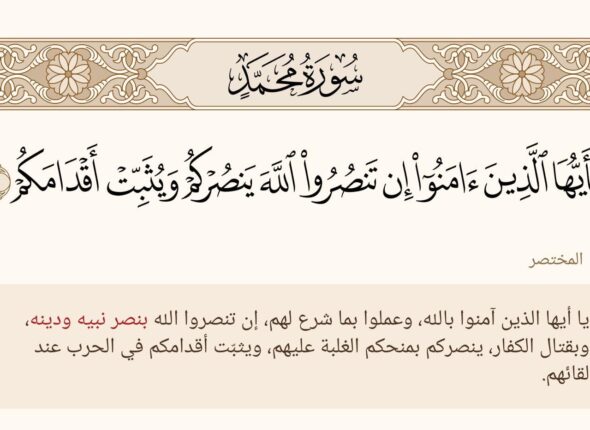 سُورَةُ مُحَمَّدٍ
أَيُّهَا ٱلَّذِينَ ءَامَنُوٓا۟ إِن تَنصُرُوا۟ ٱللَّهَ يَنصُرْكُمْ وَيُثَبِّتْ أَقْدَامَكُمْ
المختصر
يا أيها الذين آمنوا بالله، وعملوا بما شرع لهم، إن تنصروا الله بنصر نبيه ودينه،
وبقتال الكفار، ينصركم بمنحكم الغلبة عليهم، ويثبّت أقدامكم في الحرب عند
لقائهم.